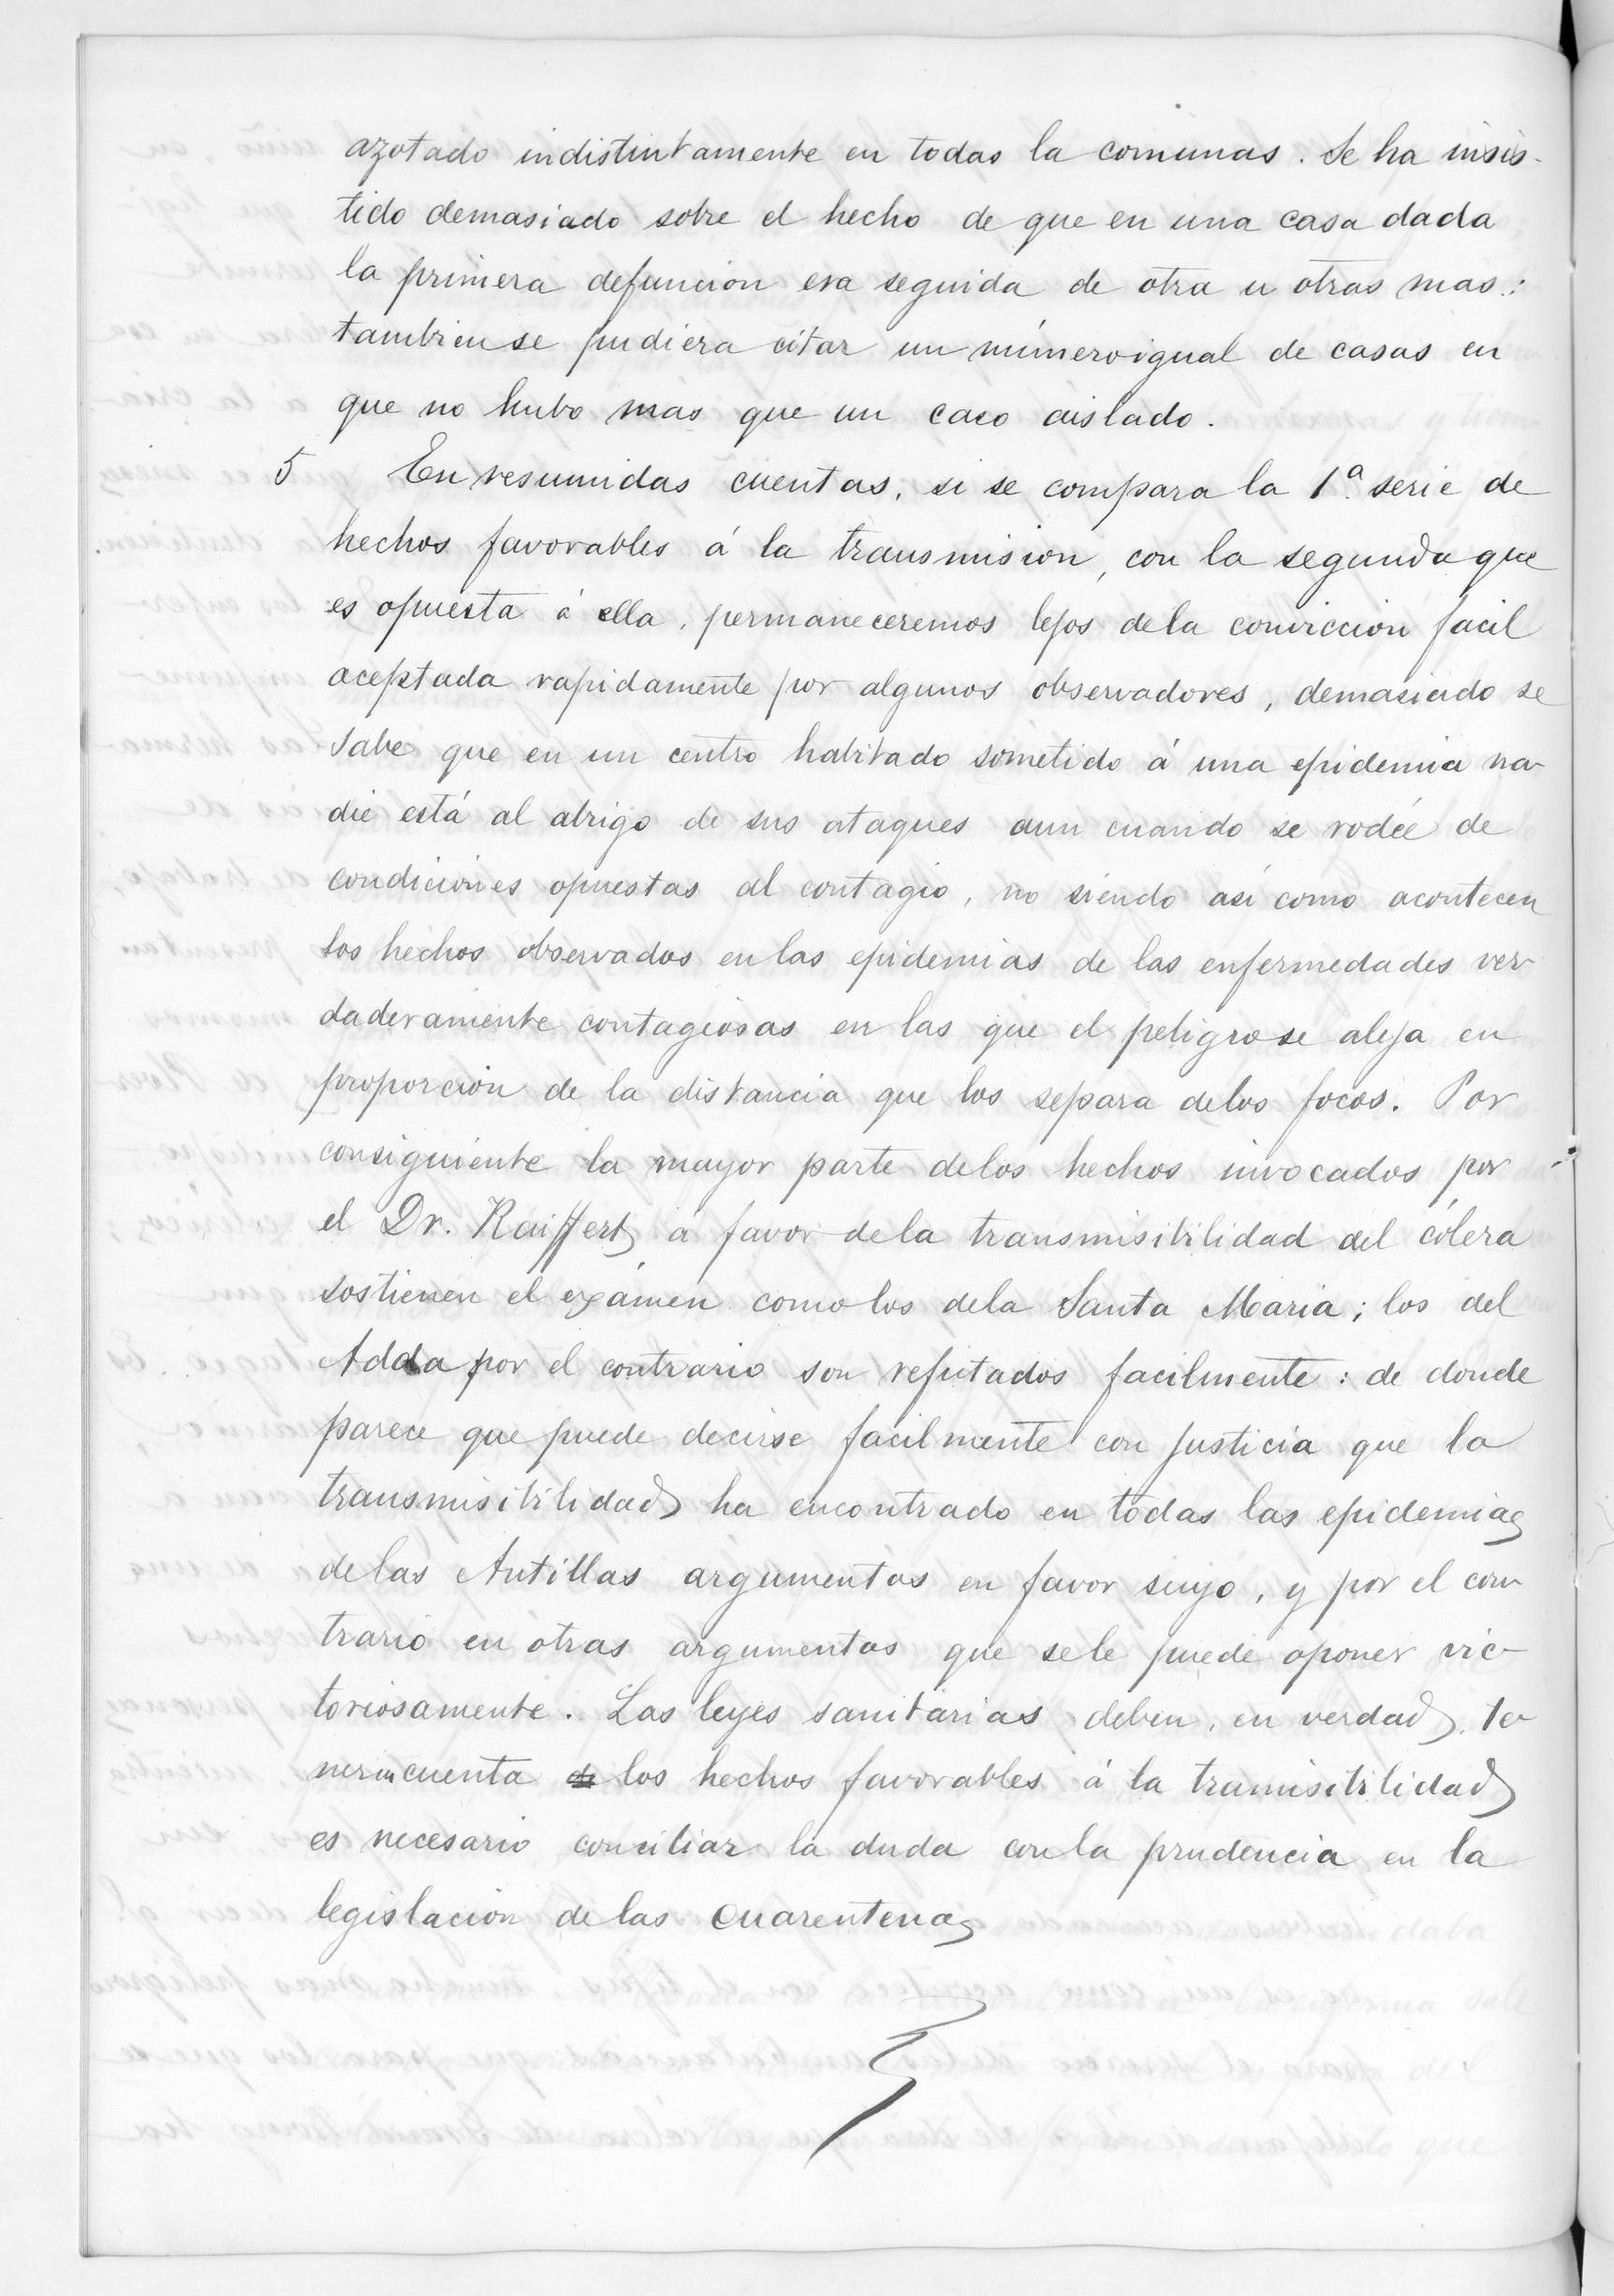 azotado indistintamente en todas la comunas. Se ha insis-
tido demasiado sobre el hecho de que en una casa dada
la primera defuncion era seguida de otra u otras mas:
tambien se pudiera citar un número igual de casas en
que no hubo mas que un caso aislado.
5 En resumidas cuentas, si se compara la 1ª serie de
hechos favorables á la transmision, con la segunda que
es opuesta á ella, permaneceremos lejos de la conviccion facil
aceptada rapidamente por algunos observadores, demasiado se
sabe que en un centro habitado sometido á una epidemia na-
die está al abrigo de sus ataques aun cuando se rodée de
condiciones opuestas al contagio, no siendo así como acontecen
los hechos observados en las epidemias de las enfermedades ver-
daderamente contagiosas en las que el peligro se aleja en
proporción de la distancia que los separa de los focos. Por
consiguiente la mayor parte de los hechos invocados por
el Dr. Raiffert á favor de la transmisibilidad del cólera
sostienen el exámen como los de la Santa Maria; los del
Adda por el contrario son refutados facilmente: de donde
parece que puede decirse facilmente con justicia que la
transmisibilidad ha encontrado en todas las epidemias
de las Antillas argumentos en favor suyo, y por el con-
trario en otras argumentos que se le puede oponer vic-
toriosamente. Las leyes sanitarias deben, en verdad, te-
ner en cuenta los hechos favorables á la tramisibilidad
es necesario conciliar la duda con la prudencia en la
legislacion de las cuarentenas